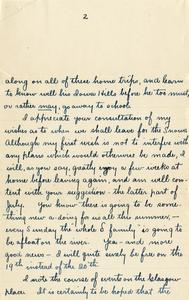 2
along on all of these home trips, and learn
to know well his Iowa Hills before he too must,
or rather may, go away to school.
I appreciate your consultation of my
wishes as to when we shall leave for the
Although my first wish is not to interfere with
any plans which would otherwise be made, I
will, as you say, a few weeks at
home before leaving again, and am well con-
tent with your suggestion - the latter part of
July. You know there is going to be some-
thing new a-doing for us all this summer, -
every Sunday the whole "family" is going to
be afloat on the river. Yea - and more
good news - I will quite surely be free on the
19th instead of the 20th.
I note the course of events on the Glasgow
place. It is certainly to be hoped that the